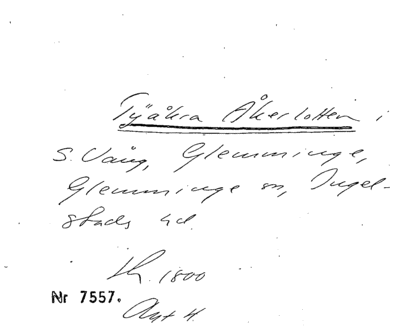 Tyåkra Åkerlotten i
S. Vång, Glemminge,
Glemminge sn, Ingel-
stads hd.
1800
Nr 7557.